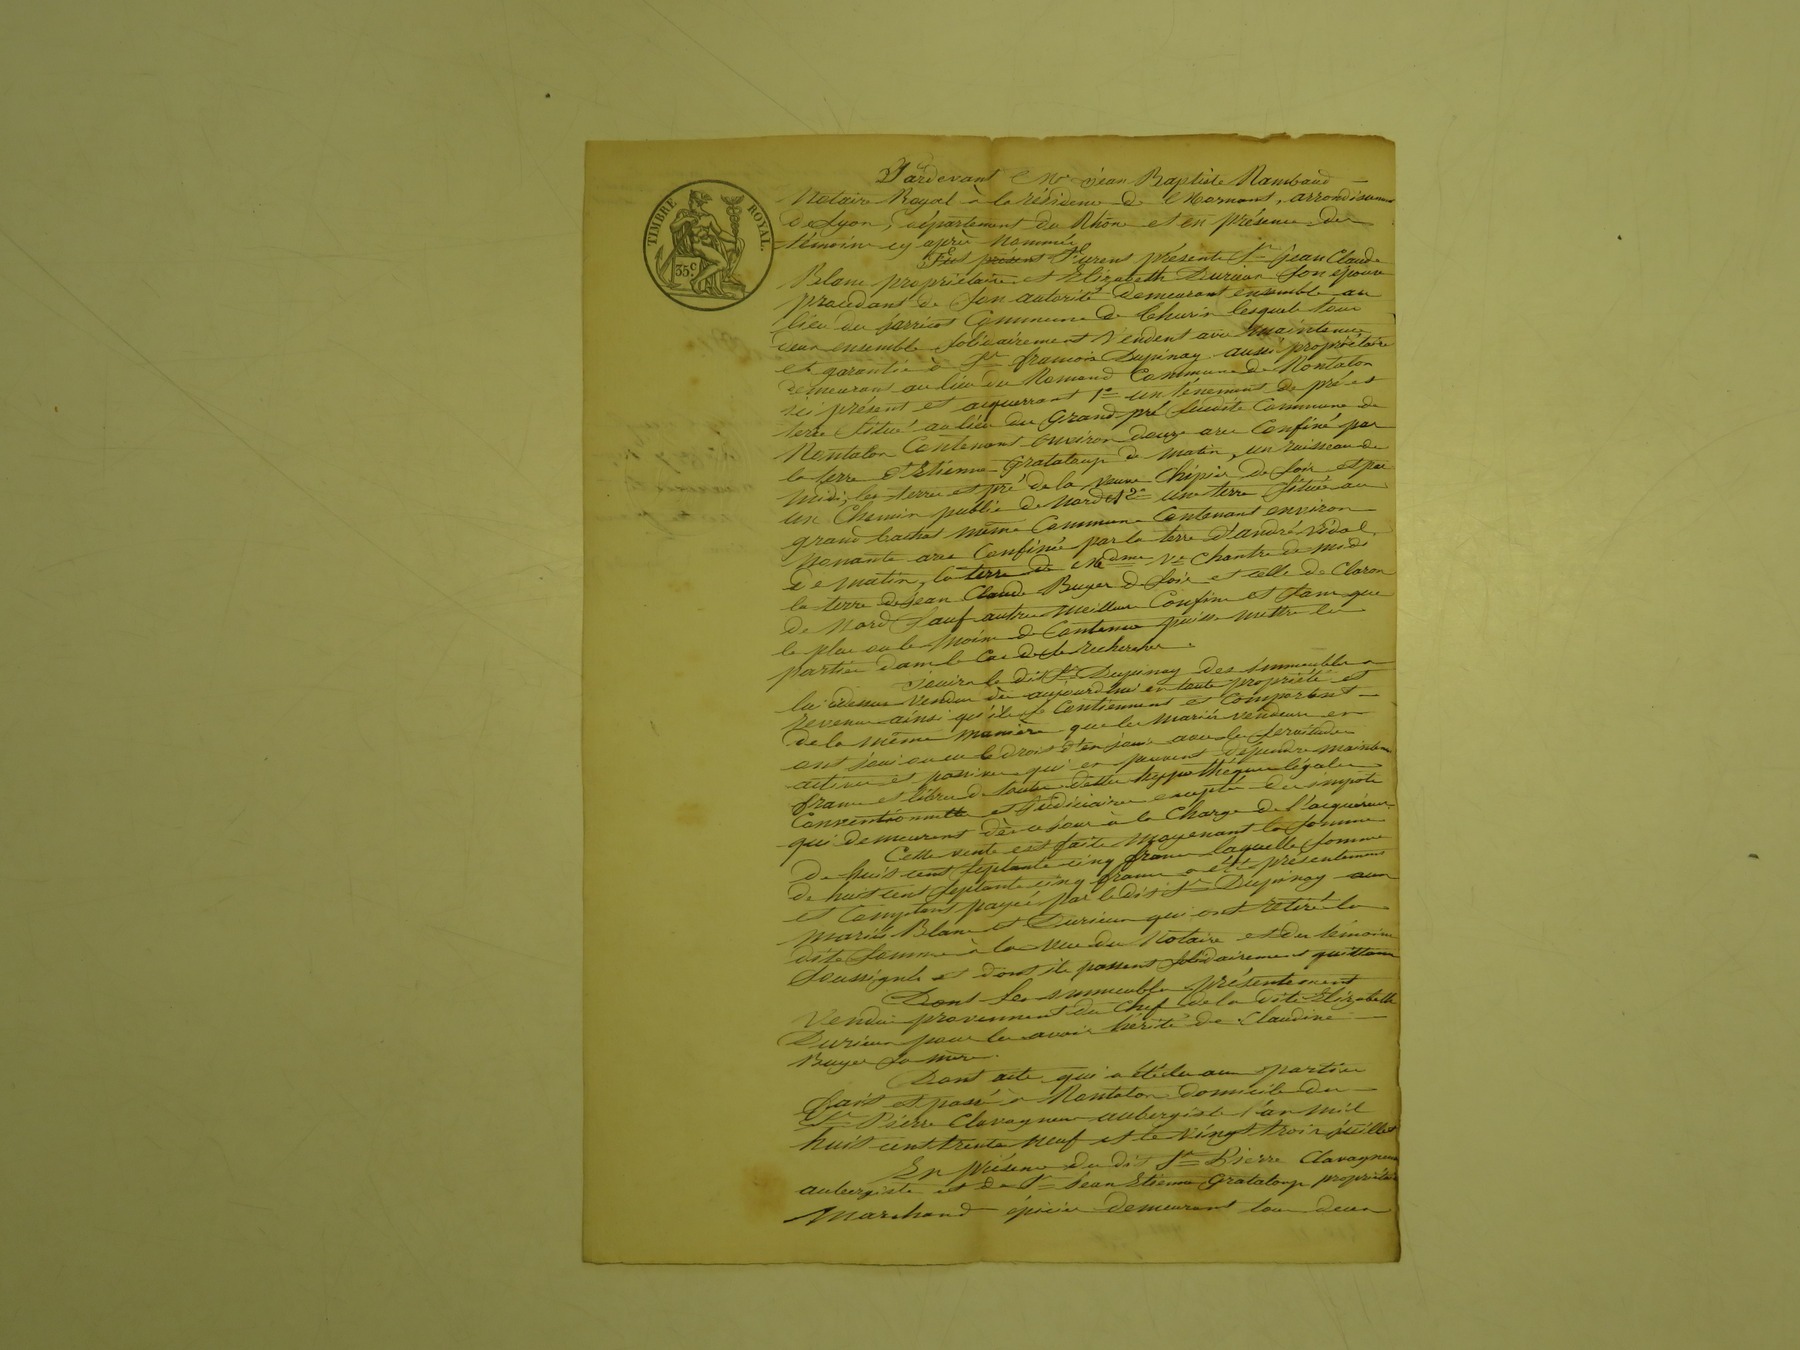 TIMBRE ROYAL.
35 c.
Pardevant Me Jean Baptiste Rambaud
Notaire Royal à la résidence de Mornant, arrondissement
de Lyon, département du Rhône et en présence des
témoins cy après nommés
Fut présent Furent présents Sr Jean Claude
Blanc propriétaire et Elizabeth Durieux son épouse
procédant de son autorité demeurant ensemble au
lieu du Jarricot Commune de Thurin lesquels tous
deux ensemble solidairement vendent avec maintenue
et garantie à Sr francois Dupinay aussi propriétaire
demeurant au lieu du Romand Commune de Rontalon
ici présent et acquerrant 1o un tènement de pré et
terre situé au lieu du Grand pré susdite Commune de
Rontalon Contenant environ douze ares Confiné par
la terre d'Etienne Grataloup de matin, un ruisseau de
midi, les terre et pré de la veuve Chipier de soir et par
un Chemin public de nord et 2o une terre située au
grand même Commune Contenant environ
nonante ares Confinée par la terre d'andré Vidal
de matin, la terre de Mdme Ve Chantre de midi
la terre de Jean Claude Buyer de soir et celle de Claron
de nord sauf autres meilleurs Confins et sans que
le plus ou le moins de Contenue puisse mettre les
parties dans le Cas de se rechercher.
Jouira le dit Sr Dupinay des immeubles a
lui cidessus vendus dès aujourdhui en toute propriété et
revenus ainsi qu'ils se Contiennent et Comportent
de la même manière que les mariés vendeurs en
ont joui ou eu le droit d'en jouir avec les servitudes
actives et passives qui en peuvent dépendre maintenus
francs et libres de toutes dettes hyppothèques légales
Conventionnelles et judiciaires excepté des impots
qui demeurent dès ce jour à la Charge de l'acquéreur.
Cette vente est faite moyenant la somme
de huit cent septante cinq francs laquelle somme
de huit cent septante cinq francs a été présentement
et Comptant payée par le dit Sr Dupinay aux
mariés Blanc et Durieux qui ont retiré la
dite somme à la vue du Notaire et des témoins
soussignés et dont ils passent solidairement quittance
Dont les immeubles présentement
vendus proviennent du Chef de la dite Elizabeth
Durieux pour les avoir hérité de Claudine
Buyer sa mère.
Dont acte qui a été lu aux parties
fait et passé à Rontalon domicile du
Sr Pierre Clavagneux aubergiste l'an mil
huit cent trente neuf et le vingt trois juillet
En présence du dit Sr Pierre Clavagneux
aubergiste et de Sr Jean Etienne Grataloup propriétaire
Marchand épicier demeurant tous deux